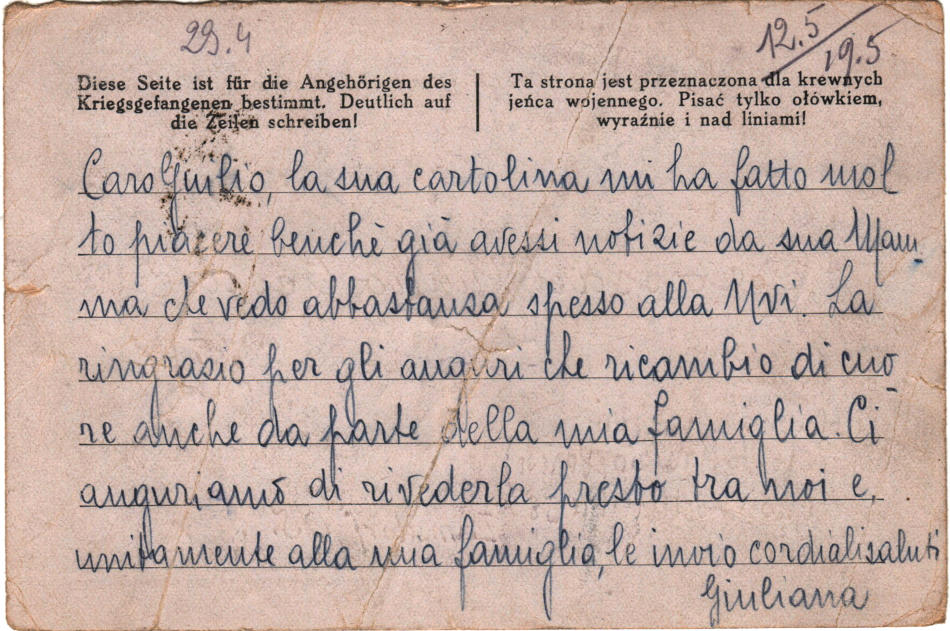 29.4
12.5
19.5
Diese Seite ist für die Angehörigen des
Kriegsgefangenen bestimmt. Deutlich auf
die Zeilen schreiben!
Ta strona jest przeznaczona dla krewnych
jeńca wojennego. Pisać tylko ołówkiem,
wyraźnie i nad liniami!
Caro Giulio, la sua cartolina mi ha fatto mol
to piacere benchè già avessi notizie da sua Mam
ma che vedo abbastansa spesso alla Uvi. La
ringrasio per gli auguri che ricambio di cuo
re anche da parte della mia famiglia. Ci
auguriamo di rivederla presto tra noi e,
unitamente alla mia famiglia, le invio cordiali saluti
Giuliana